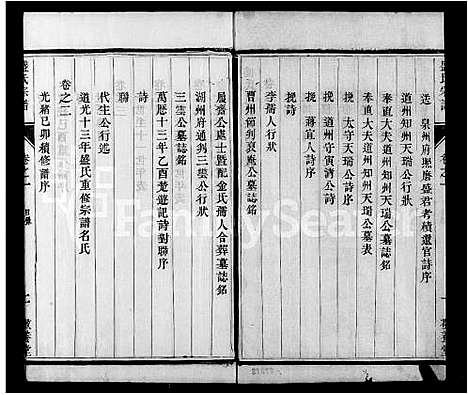 送泉州府照磨盛君考積還官詩序
道州知州天瑞公行狀
奉直大夫道州知州天瑞公墓誌銘
奉直大夫道州知州天瑞公墓表
輓詩 太守天瑞公詩
輓 守寅濟公詩
輓 蔣宜人詩序
李孺人行狀
曹州節判裒庵公墓誌銘
履齋公處士暨配金氏孺人合葬墓誌銘
湖州府通判三雲公行狀
三雲公墓誌銘
萬厯十三年乙酉楚遊記詩對聯序
詩
聯
代生公行述
道光十三年盛氏重修宗譜名氏
卷之二
光緒己卯積修譜序
盛氏宗譜
卷之一
目錄
盛氏宗譜
卷之一
敬養堂
FamilySearch